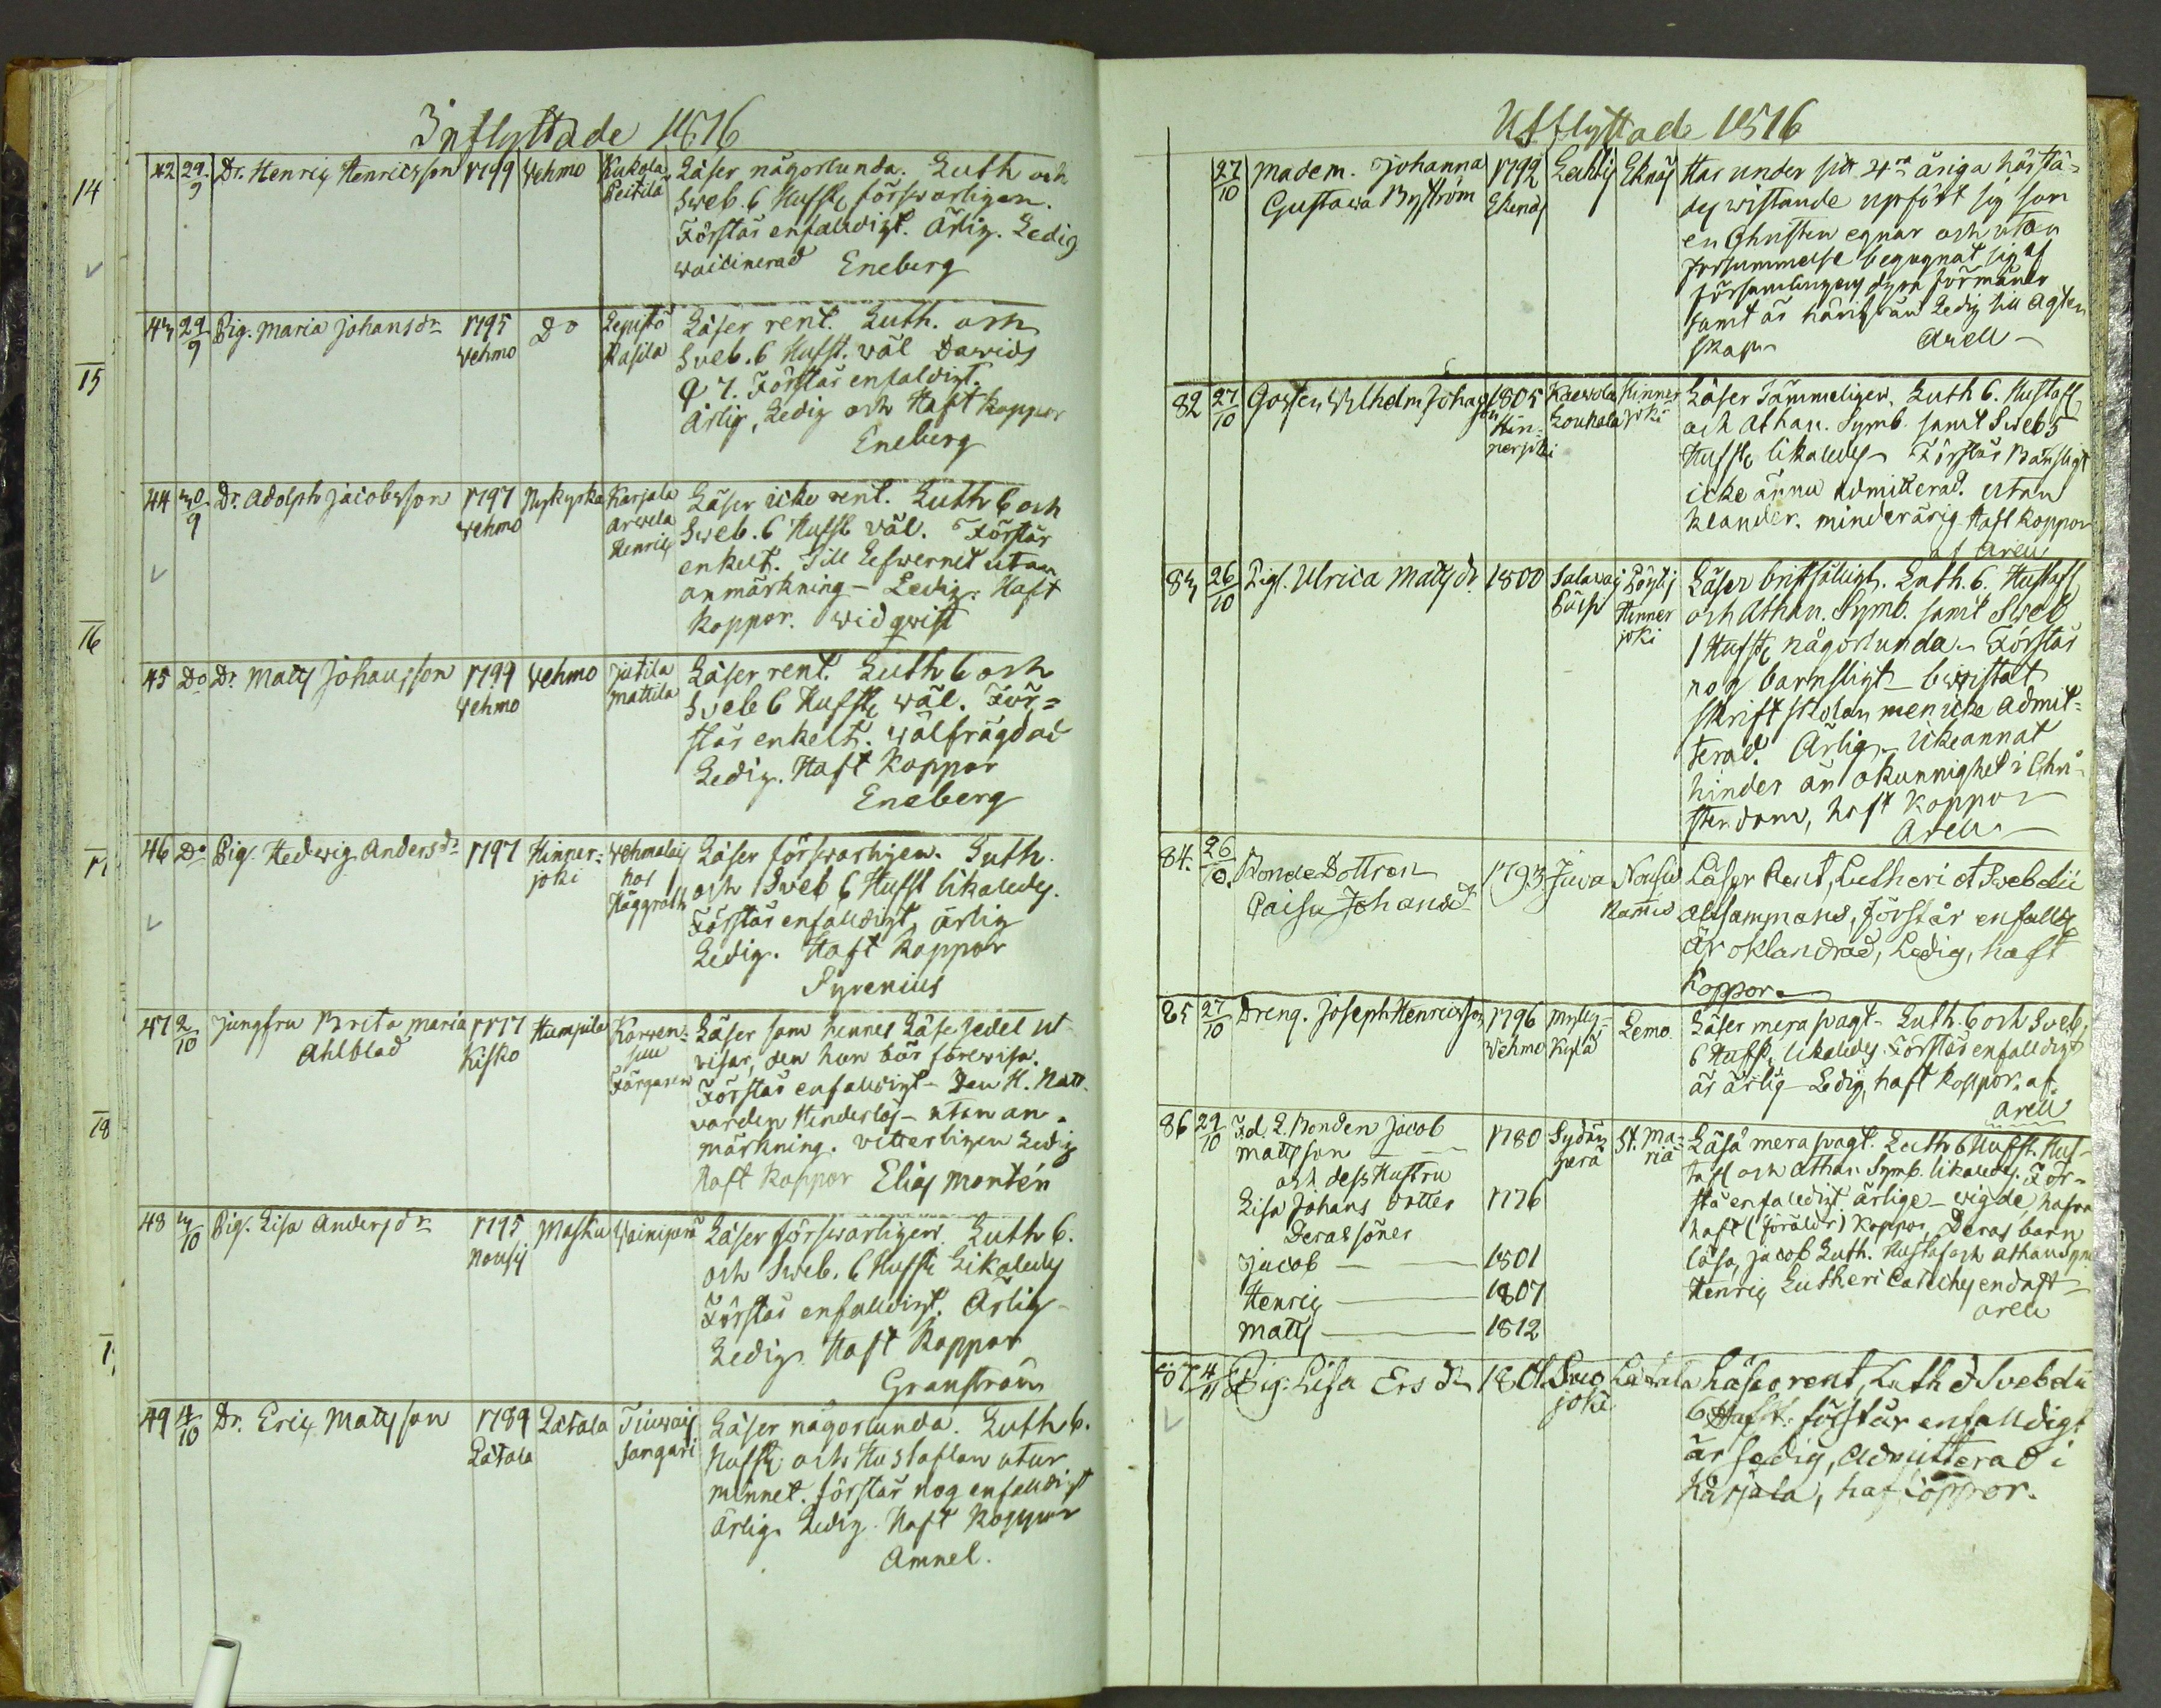 Inflyttade 1816
14
15
16
17
18
42 29/9 Dr. Henric Henricsson 1799 Vehmo Kukola Peitilä Läser någorlunda. Luth och
Sveb. 6 Hufst försvarligen.
Förstår enfalldigt. Ärlig. Ledig
waccinerad Eneberg
43 29/9 Pig. Maria Johansdr 1795 Vehmo Do Lepistö Rasila Läser rent. Luth. och
Sveb. 6 Hufst. väl Davids
Förstår enfaldigt.
Ärlig, Ledig och Haft Koppor
Eneberg
44 30/9 Dr. Adolph Jacobsson 1797 Vehmo Nykyrka Karjala Arvela Henric Läser icke rent. Luth 6 och
Sveb. 6 Hufst väl. Förstår
enkelt. Till Lefwernet utan
anmärkning - Ledig. Haft
Koppor. Widqwist
45 Do Dr. Matts Johansson 1799 Vehmo Vehmo Jutila Mattila Läser rent. Luth 6 och
Sveb 6 Hufst wäl. För=
står enkelt. Wälfrägdad
Ledig. Haft Koppor
Eneberg
46 Do Pig. Hedwig Andersdr 1797 Hinner=joki Vehmalais hos Häggroth Läser förswarligen. Luth.
och Sveb 6 Hufst likaledes.
Förstår enfalldigt, ärlig
Ledig. Haft Koppor
Syrenius
47 2/10 Jungfru Brita Maria Ahlblad 1777 Kisko Humpila Korven=suu Färgaren Läser som hennes Läse Sedel ut
visar, den hon bör förevisa.
Förstår enfalldigt - Den H. Natt
varden Hinderlös - utan an=
märkning. vitterligen Ledig
Haft Koppor Elias Montén
48 3/10 Pig. Lisa Andersdr 1795 Nousis Masku Vainiperä Läser förswarligen. Luth 6.
och Sveb. 6 Hufst Likaledes
Förstår enfalldigt. Ärlig
Ledig. Haft Koppor
Granström
49 4/10 Dr. Eric Mattsson 1789 Låtala Låtala Sangari Läser någorlunda. Luth 6.
Hufst. och Hustaflan utur
minnet. förstår nog enfalldigt
ärlig. Ledig. Haft Koppor
Amnel.
Utflyttade 1816
27/10 Madem. Johanna Gustava Byström 1792 Ekenäs Lahtis Eknäs Har under sitt 4ra åriga härstä=
des wistande upfört sig som
en Christen egnar och utan
försummelse begagnat sig af
församlingens dyra förmåner
samt är härifrån Ledig till Agten
skap Arell
82 27/10 Gossen Wilhelm Johansson 1805 Hin=nerjoki Kaewola Loukola Hinner joki Läser Sämmeligen. Luth 6. Hustafl
och Athan. Symb. samt Sveb 5
Hufst likaledes - Förstår Barnsligt
icke ännu admitterad. utan
klander. minderårig. Haft Koppor
af Arell
83 26/10 Pigl. Ulrica Mattsdr 1800 Salavais Pärsi Pöytis Hinner joki Läser bristfälligt. Luth. 6. Hustafl
och Athan. Symb. samt Sveb
1 Hufst någorlunda. Förstår
nog barnsligt - bewistat
skriftskolan men icke admit=
terad. Ärlig. Icke annat
hinder än okunnighet i Chri
stendom, haft koppor
Arell
84. 26/10. Bonde Dottren Caisa Johansdr 1793 Juva Nousis Läser Rent, Lutheri et Svebelii
altsammans, förstår enfalld
är oklandrad, Ledig, haft
Koppor.
85 27/10 Dreng. Joseph Henricsson 1796 Vehmo Kylä Lemo Läser mera svagt. Luth. 6 och Sveb.
6 Hufst likaledes. Förstår enfalldigt
är ärlig - Ledig, haft koppor. af.
Arell
86 29/10 Fd. L. Bonden Jacob 1780 Sydän perä St. Ma=ria Läsa mera svagt. Luth 6 Hufst. Hus=
Mattsson
och dess Hustru
tafl och Athan. Symb. likaledes. För=
Lisa Johans dotter 1776
stå enfalldigt. ärlige - vigde, hafva
Deras söner
haft (föräldr) koppor, Deras barn
Jacob 1801
läsa, Jacob Luth. Hustafl och Athan Sym
Henric 1807
Henric Lutheri Cateches endast
Matts 1812
Arell
87 4/11 Pig. Lisa Ersdr Suo joki Låtala Läser rent, Luth et Svebelii
6 Hufst. förstår enfalldigt
är ledig, admitterad i
Karjala, haft koppor.